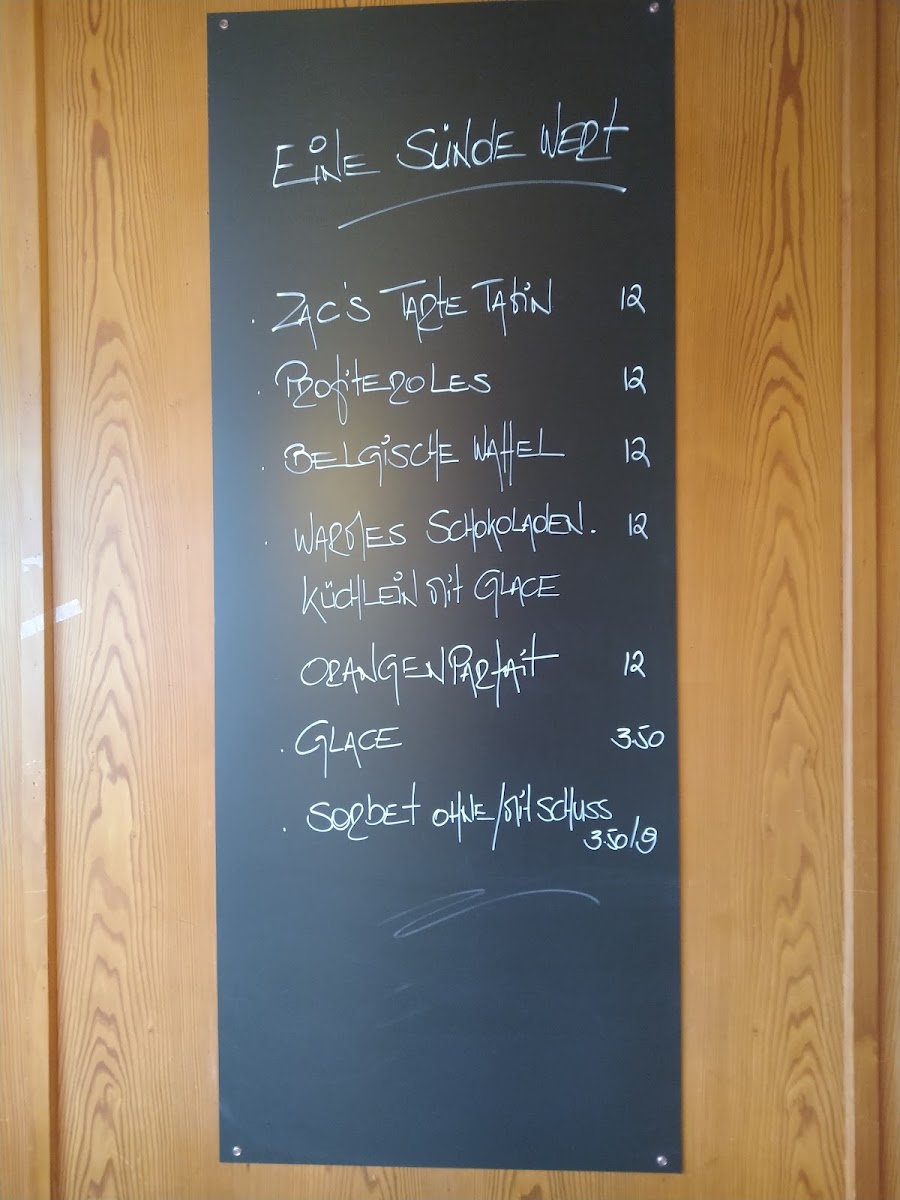 EiNE SÜNDE WERt
· ZAC'S TARtE TAtiN 12
· PROfitEROLES 12
· BELGiSCHE WAffEL 12
· WARMES SCHOKOLADEN. 12
KÜCHLEiN Mit GLACE
ORANGENPARfAit 12
· GLACE 3.50
· SORbEt OHNE/Mit SCHUSS
3.50/9